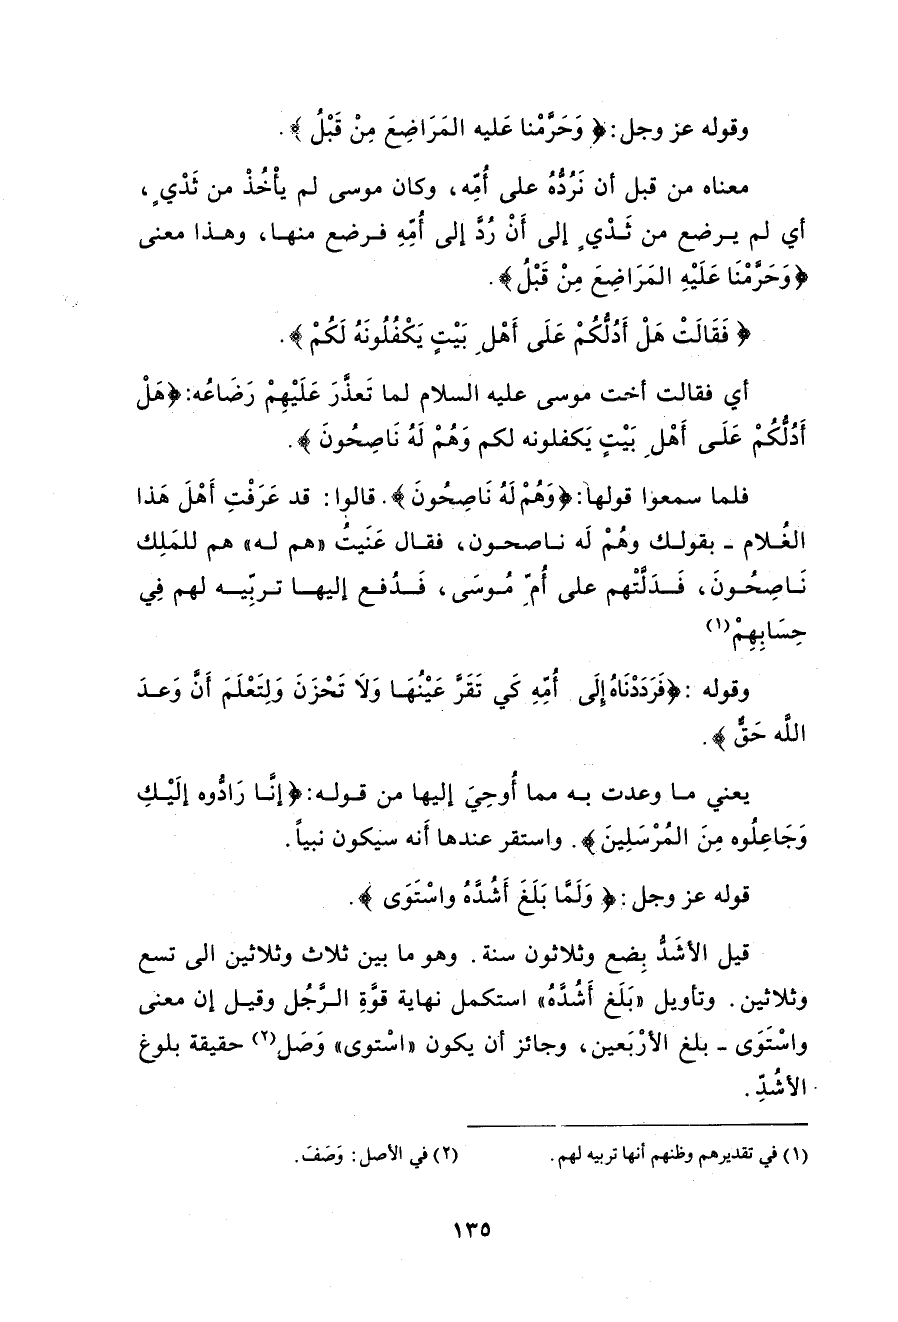 وقوله عز وجل: ﴿ وَحَرَّمْنا عَليه المَرَاضِعَ مِنْ قَبْلُ ﴾.
معناه من قبل أن نَرُدَّهُ على أُمِّه، وكان موسى لم يأْخُذْ من ثَدْيٍ،
أي لم يرضع من ثَدْيٍ إلى أَنْ رُدَّ إلى أُمِّهِ فرضع منها، وهذا معنى
﴿وَحَرَّمْنَا عَلَيْهِ المَرَاضِعَ مِنْ قَبْلُ﴾.
﴿ فَقَالَتْ هَلْ أَدُلُّكُمْ عَلَى أَهْلِ بَيْتٍ يَكْفُلُونَهُ لَكُمْ ﴾.
أي فقالت أخت موسى عليه السلام لما تَعذَّرَ عَلَيْهِمْ رَضَاعُه: ﴿هَلْ
أَدُلُّكُمْ عَلَى أَهْلِ بَيْتٍ يَكفلونه لكم وَهُمْ لَهُ نَاصِحُونَ ﴾.
فلما سمعوا قولها: ﴿وَهُمْ لَهُ نَاصِحُونَ ﴾. قالوا: قد عَرَفْتِ أَهْلَ هَذا
الغُلام - بقولك وهُمْ لَه ناصحون، فقال عَنَيتُ «هم له» هم للمَلِك
نَاصِحُونَ، فَدَلَّتْهم على أُمِّ مُوسَى، فَدُفع إليها تربِّيه لهم فِي
حِسَابِهِمْ(١)
وقوله : ﴿فَرَدَدْنَاهُ إِلَى أُمِّهِ كَي تَقَرَّ عَيْنُهَا وَلَا تَحْزَنَ وَلِتَعْلَمَ أَنَّ وَعدَ
اللَّه حَقٌّ ﴾.
يعني ما وعدت به مما أُوحِيَ إليها من قوله: ﴿إنَّا رَادُّوه إلَيْكِ
وَجَاعِلُوه مِنَ المُرْسَلِينَ﴾. واستقر عندها أنه سيكون نبياً.
قوله عز وجل: ﴿ وَلَمَّا بَلَغَ أَشُدَّهُ واسْتَوَى ﴾.
قيل الأشَدُّ بِضع وثلاثون سنة. وهو ما بين ثلاث وثلاثين الى تسع
وثلاثين. وتأويل «بَلَغ أَشُدَّهُ» استكمل نهاية قوَّةِ الرَّجُل وقيل إن معنى
واسْتَوَى - بلغ الأرْبَعين، وجائز أن يكون «اسْتوى» وَصَل(٢) حقيقة بلوغ
الأشُدِّ.
(١) في تقديرهم وظنهم أنها تربيه لهم. (٢) في الأصل: وَصَفَ.
١٣٥